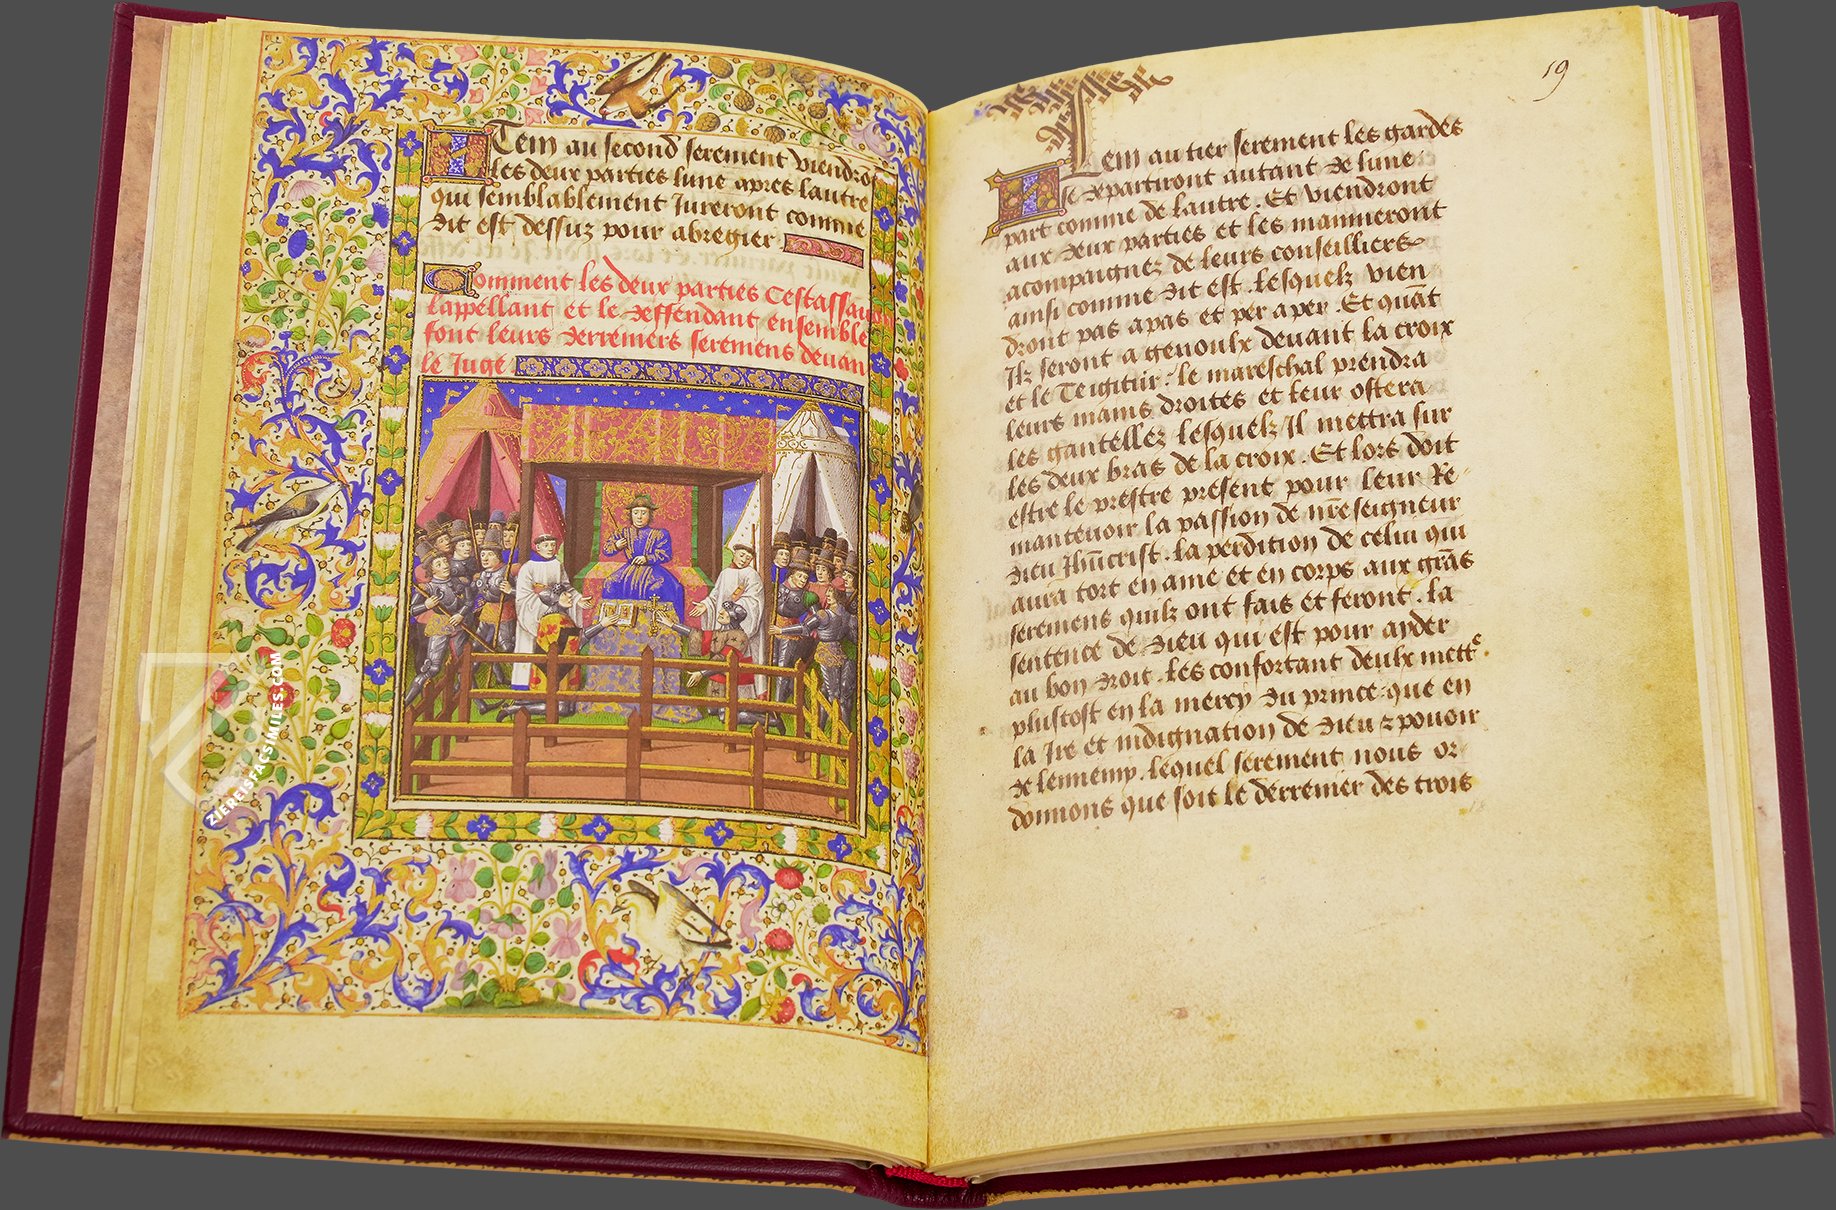 Item au second serement viendro
les deux parties lune apres lautre
qui semblablement Jureront comme
dit est dessuz pour abregier
Comment les deux parties Cestassavoir
lappellant et le deffendant ensemble
font leurs derreniers seremens devan
le Juge
19
Item au tier serement les gardes
se departiront autant de lune
part comme de lautre. Et viendront
aux deux parties et les manneront
acompaignez de leurs conseilliers
ainsi comme dit est. lesquelz vien
dront pas apas et per aper. Et quāt
Ilz seront a genoulx devant la croix
et le Te igitur: le mareschal prendra
leurs mains droites et leur ostera
les gantellez lesquelz Il mettra sur
les deux bras de la croix. Et lors doit
estre le prestre present pour leur Re
mantevoir la passion de nr̄e seigneur
dieu Jhūcrist. la perdition de celui qui
aura tort en ame et en corps aux grās
seremens quilz ont fais et feront. la
sentence de dieu qui est pour ayder
au bon droit. les confortant deulx mettre
plustost en la mercy du prince que en
la Ire et indignation de dieu z pouoir
de lennemy. lequel serement nous or
donnons que soit le derrenier des trois
ZIEREISFACSIMILES.COM